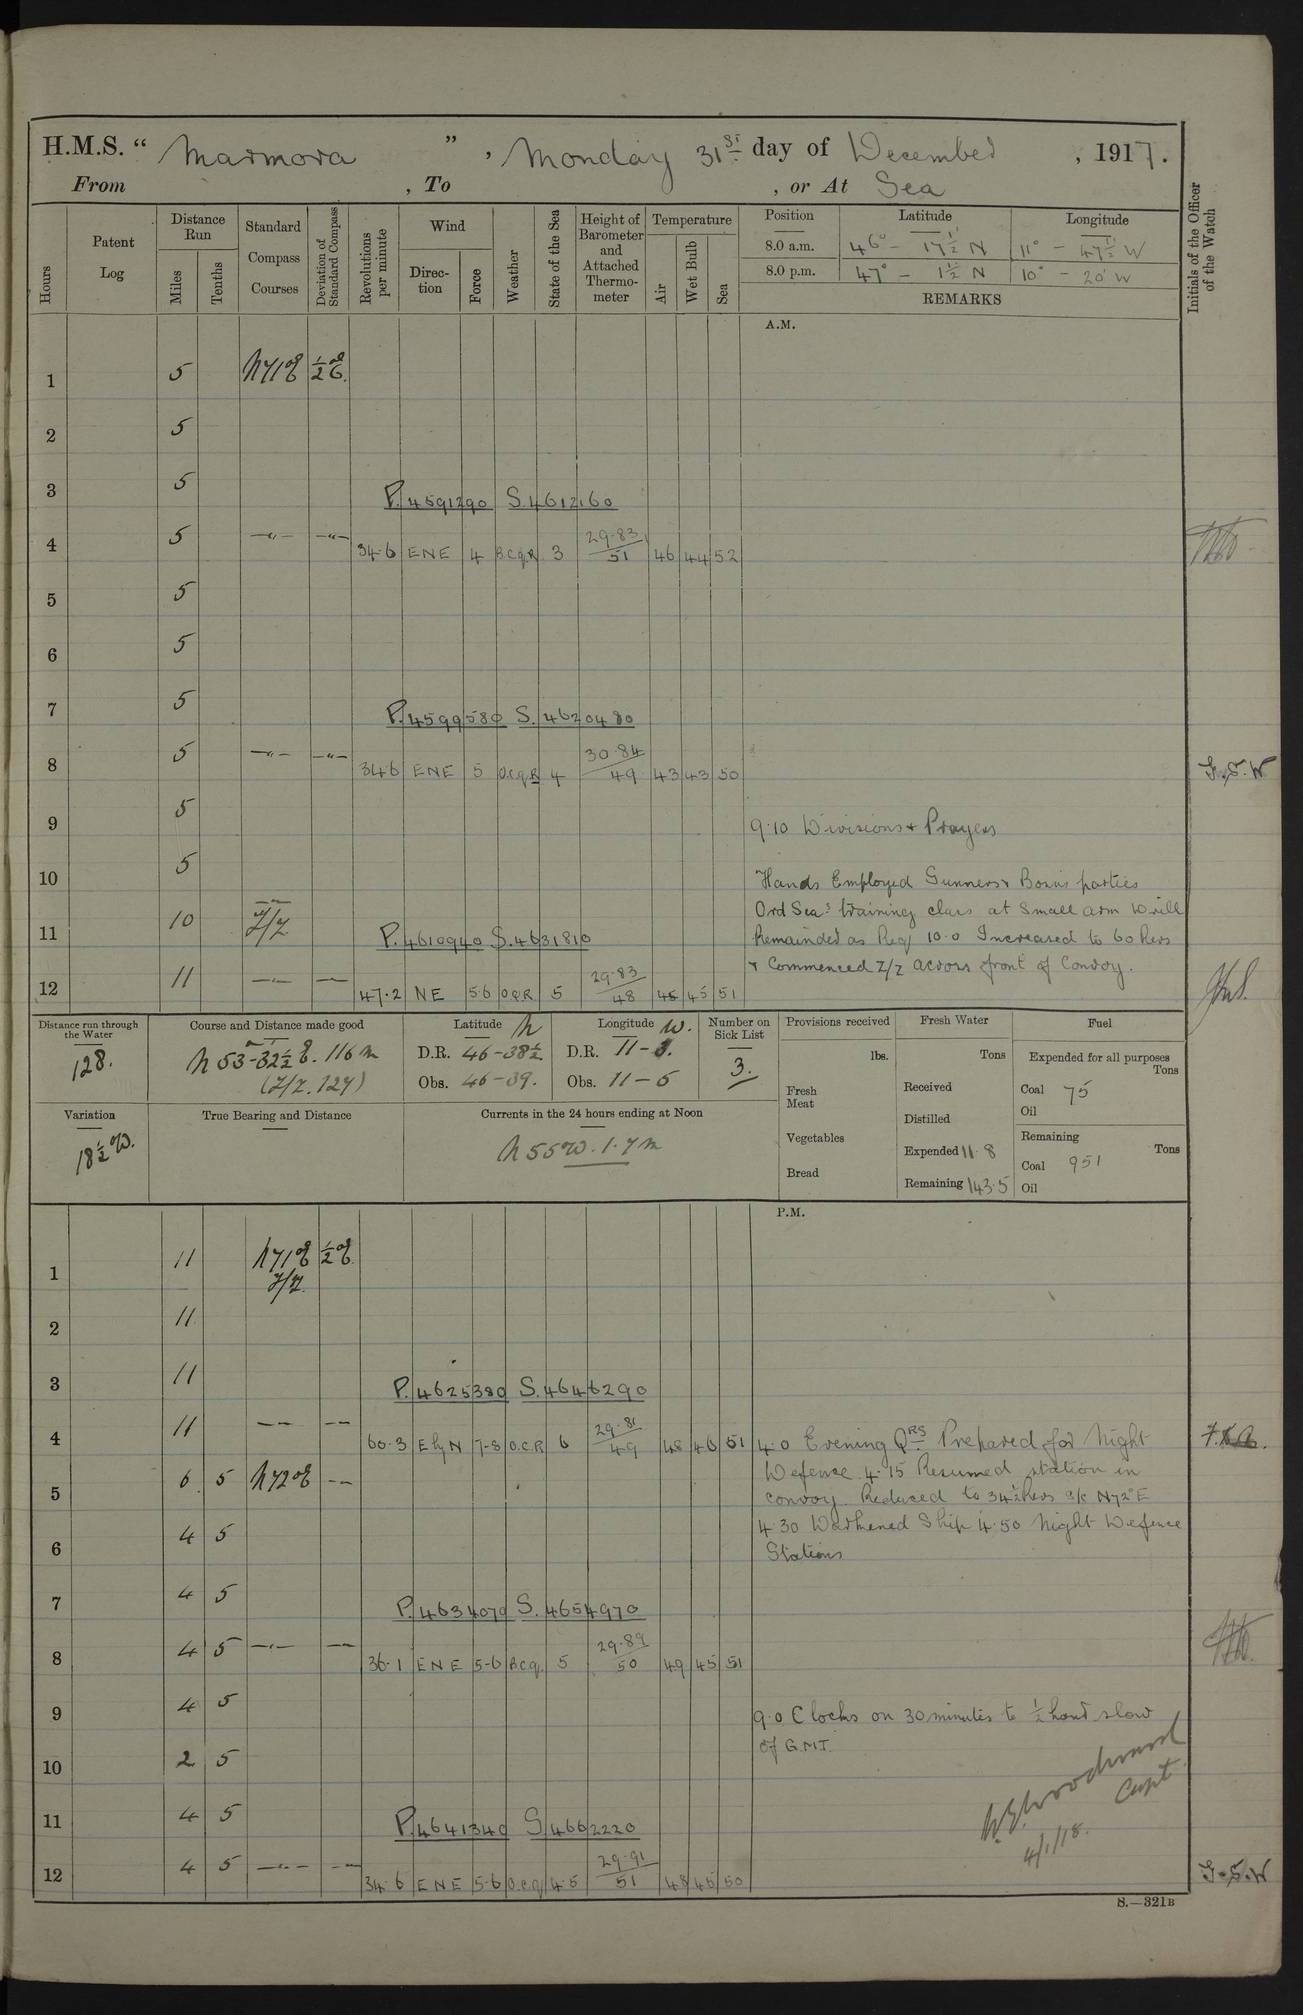 H.M.S. “ Marmora ” , Monday 31st day of December , 1917.
From , To , or At Sea
Hours
Patent Log
Distance Run
Miles
Tenths
Standard Compass Courses
Deviation of Standard Compass
Revolutions per minute
Wind
Direction
Force
Weather
State of the Sea
Height of Barometer and Attached Thermometer
Temperature
Air
Wet Bulb
Sea
Position Latitude Longitude
8.0 a.m. 46° - 17½' N 11° - 47½' W
8.0 p.m. 47° - 1½' N 10° - 20' W
REMARKS
Initials of the Officer of the Watch
A.M.
1 5 N71°E ½°E.
2 5
3 5
P. 4591290 S. 4612160
4 5 —"— —"— 34.6 ENE 4 B.C.q.R 3 29.83/51 46 44 52
5 5
6 5
7 5
P. 4599580 S. 4620480
8 5 —"— —"— 34.6 ENE 5 O.C.q.R 4 30.84/49 43 43 50 G.S.W
9 5
9.10 Divisions & Prayers
10 5
Hands Employed Gunners & Bosuns parties
Ord Seas training class at small arm Drill
11 10 Z/Z
P. 4610940 S. 4631810
Remainder as Req 10.0 Increased to 60 Revs
& Commenced Z/Z across front of Convoy.
12 11 —"— — 47.2 NE 5.6 O.Q.R 5 29.83/48 45 45 51
Distance run through the Water
128.
Course and Distance made good
N 53-32½ E. 116 m
(Z/Z. 127)
Latitude N
D.R. 46-38½
Obs. 46-39.
Longitude W.
D.R. 11-8.
Obs. 11-5
Number on Sick List
3.
Provisions received
lbs.
Fresh Meat
Vegetables
Bread
Fresh Water
Tons
Received
Distilled
Expended 11.8
Remaining 143.5
Fuel
Expended for all purposes
Tons
Coal 75
Oil
Remaining
Tons
Coal 951
Oil
Variation
18½ W.
True Bearing and Distance
Currents in the 24 hours ending at Noon
N 55 W. 1.7 m
P.M.
1 11 N71°E ½°E.
Z/Z.
2 11
3 11
P. 4625380 S. 4646290
4 11 —"— —"— 60.3 E by N 7-8 O.C.R 6 29.81/49 48 46 51
4.0 Evening Qrs Prepared for Night
Defence 4.15 Resumed station in
5 6 5 N72°E —"—
convoy. Reduced to 34½ Revs a/c N72°E
4.30 Darkened Ship 4.50 Night Defence
6 4 5
Stations
7 4 5
P. 4634070 S. 4654970
8 4 5 —"— —"— 36.1 ENE 5-6 B.c.q. 5 29.89/50 49 45 51
9 4 5
9.0 Clocks on 30 minutes to ½ hour slow
of G.M.T.
10 2 5
11 4 5
P. 4641340 S 4662220
W.G. Woodward
Capt
4/1/18.
12 4 5 —"— —"— 34.6 ENE 5-6 O.c.q 4.5 29.91/51 48 45 50 G.S.W
S.—321B